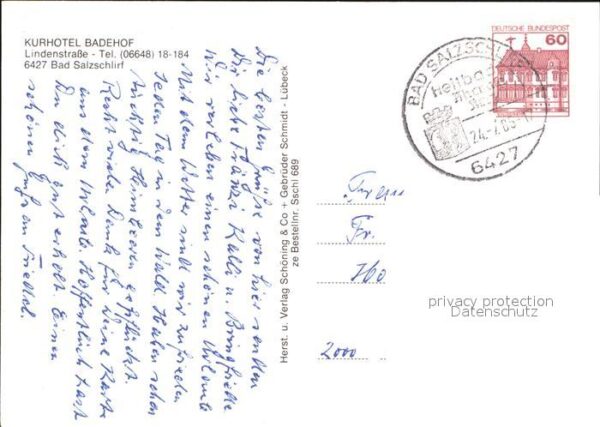 KURHOTEL BADEHOF
Lindenstraße - Tel. (06648) 18-184
6427 Bad Salzschlirf
Die besten Grüße von hier senden
Dir liebe Fränzi Kalli u. Brunfriede
Wir verleben einen schönen Urlaub
Mit dem Wetter sind wir zufrieden
Jeden Tag in dem Wald Haben schon
tüchtig Himbeeren gepflückt.
Recht vielen Dank für Deine Karte
aus dem Urlaub. Hoffentlich hast
Du dich gut erholt. Einen
schönen Gruß an Friedel.
Herst. u. Verlag Schöning & Co + Gebrüder Schmidt - Lübeck
ze Bestellnr. Sschl 689
DEUTSCHE BUNDESPOST
60
BAD SALZSCHLIRF
heilbad
6427
Fr.
2000
privacy protection
Datenschutz